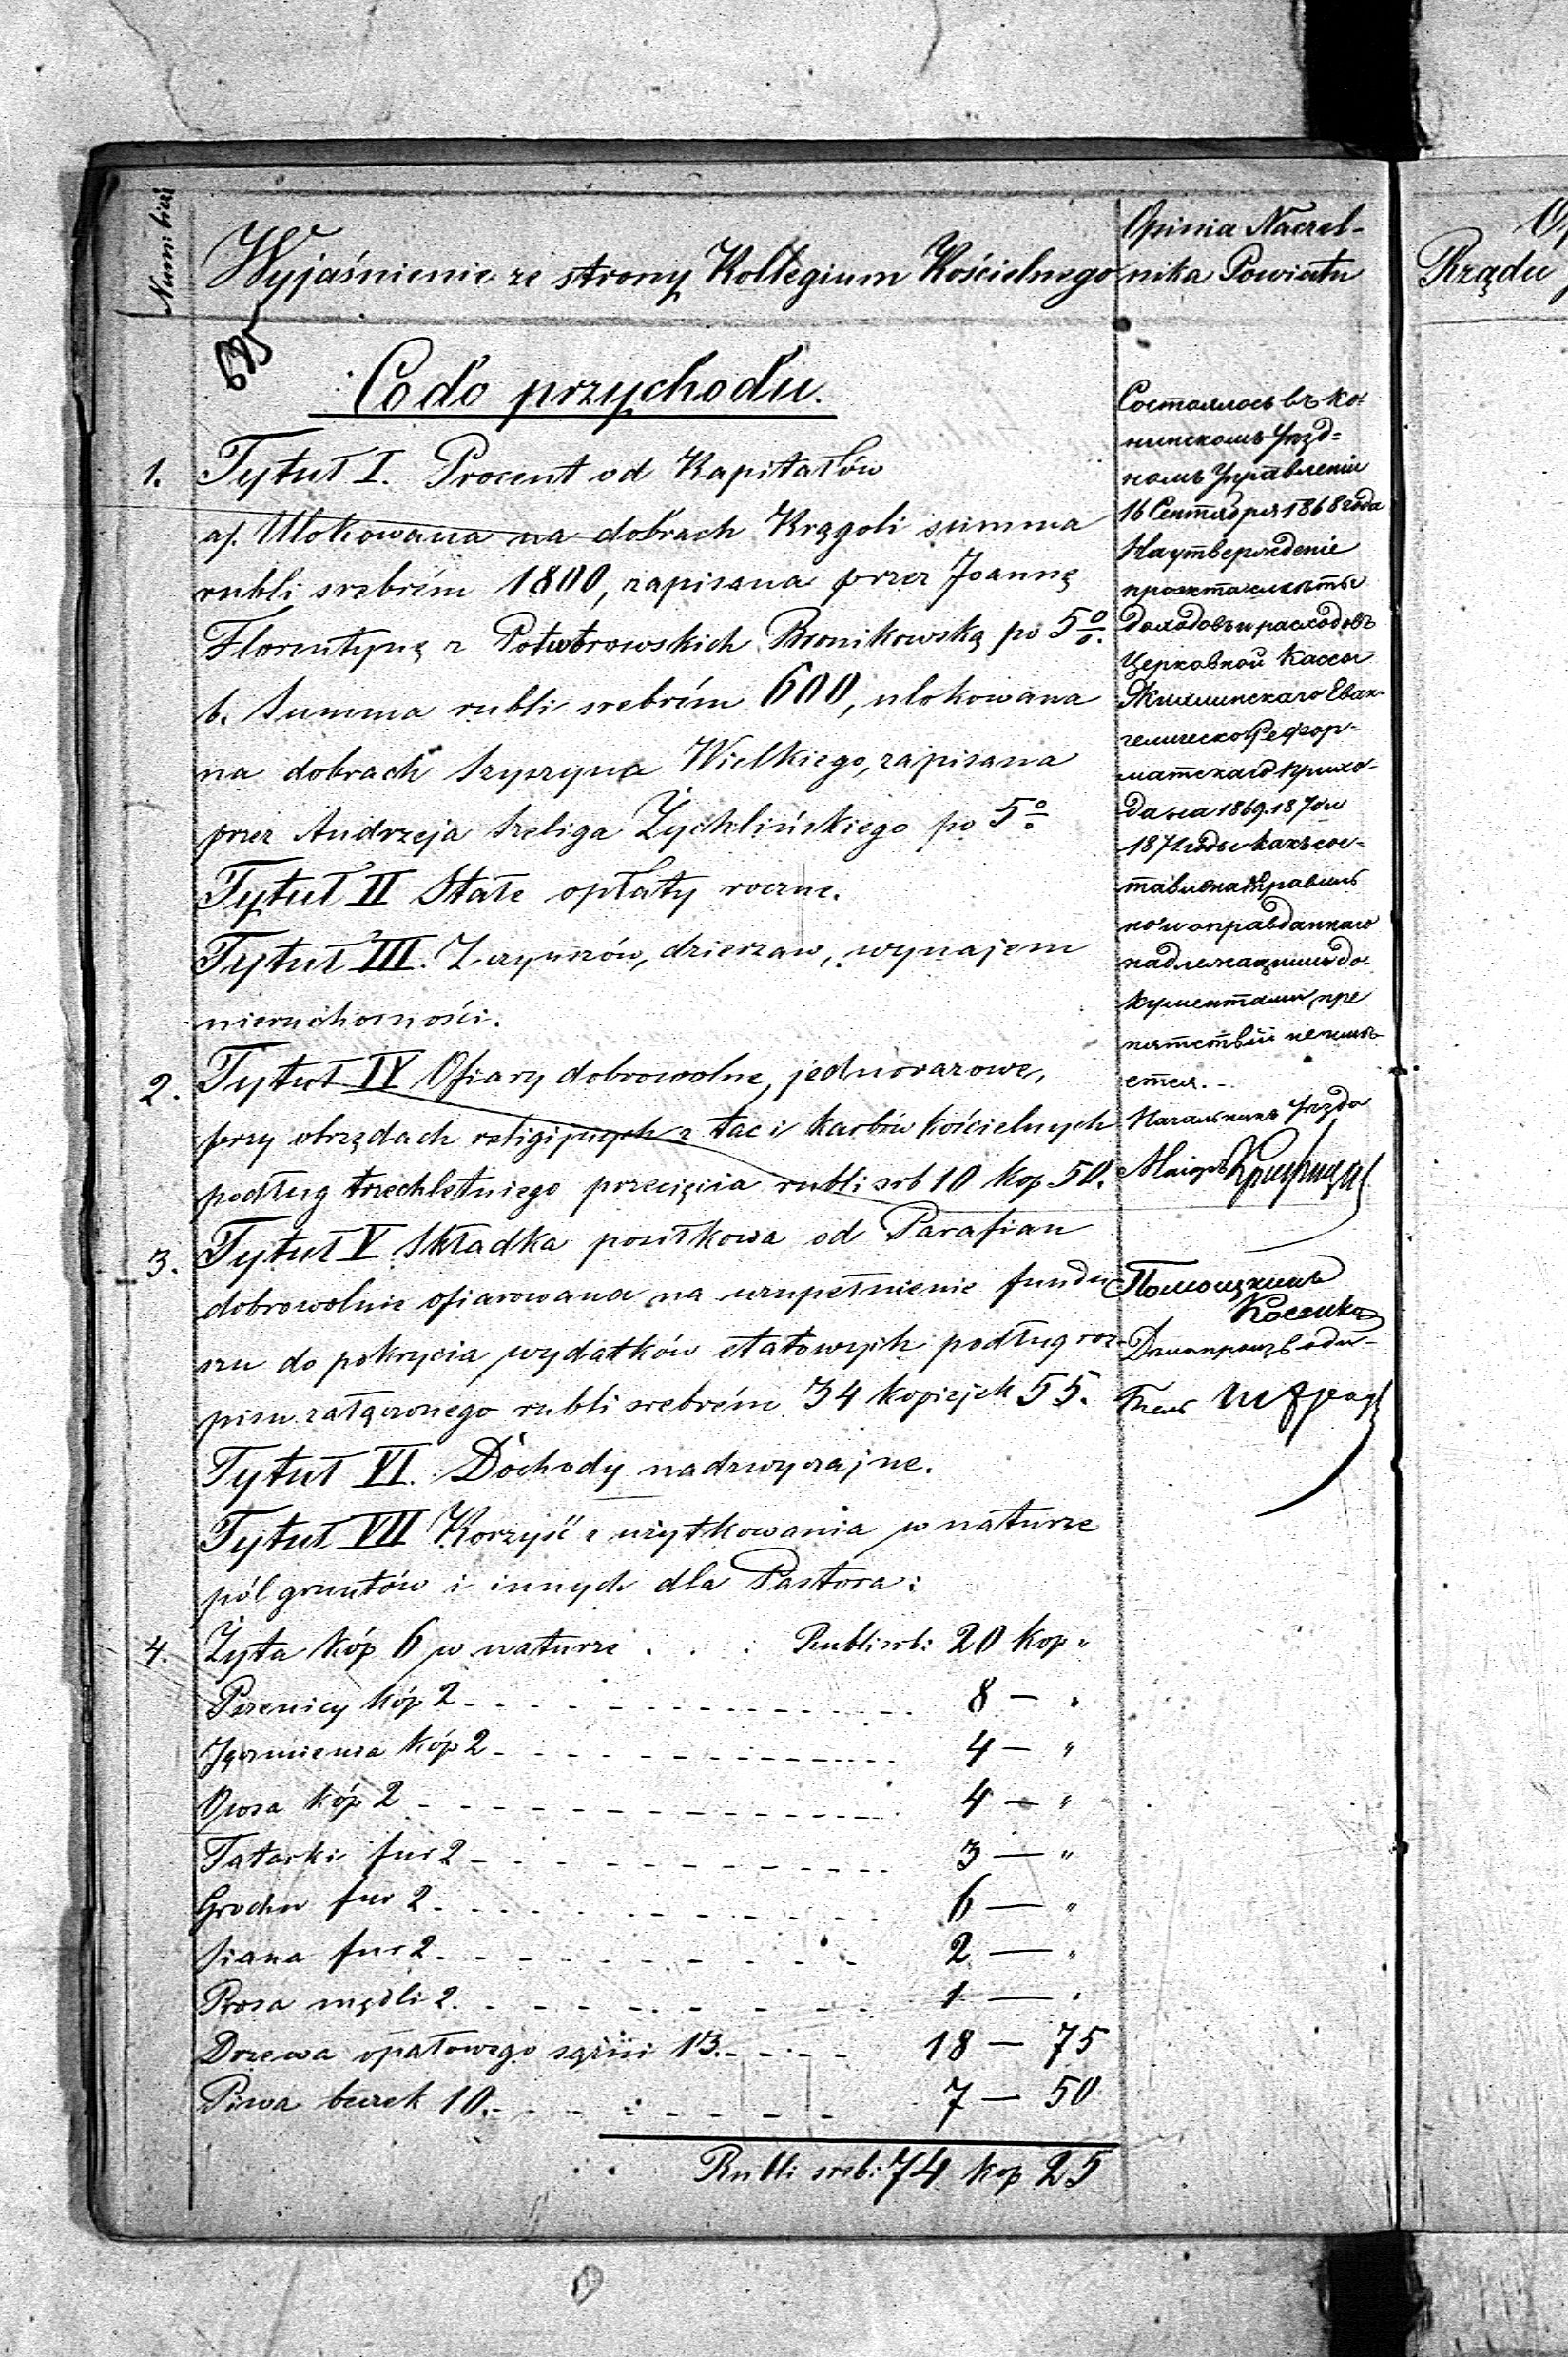 Num: bieź
Wyjaśnienie ze strony Kollegium Kościelnego
Opinia Naczel-
nika Powiatu
Rządu
685
Co do przychodu.
1. Tytuł I. Procent od Kapitałów
a/. Ulokowana na dobrach Krągoli summa
rubli srebrém 1800, zapisana przez Joannę
Florentynę z Potworowskich Bronikowską po 5%.
b. Summa rubli srebrém 600, ulokowana
na dobrach Szyszyna Wielkiego, zapisana
przez Andrzeja Szeliga Żychlińskiego po 5%
Tytuł II Stałe opłaty roczne.
Tytuł III. Z czynszów, dzierzaw, wynajem
nieruchomości.
2. Tytuł IV Ofiary dobrowolne, jednorazowe,
przy obrzędach religijnych z tac i karbón kościelnych
podług trzechletniego przecięcia rubli srb 10 kop. 50.
3. Tytuł V Składka posiłkowa od Parafian
dobrowolnie ofiarowana na uzupełnienie fundu
szu do pokrycia wydatków etatowych podług roz-
pisu załączonego rubli srebrém 34 kopiejek 55.
Tytuł VI. Dochody nadzwyczajne.
Tytuł VII Korzyść z użytkowania w naturze
pól gruntów i innych dla Pastora:
4. Żyta kóp 6 w naturze . . . Rubli srb: 20 kop "
Pszenicy kóp 2 - - - 8 — "
Jęczmienia kóp 2 - - - 4 — "
Owsa kóp 2 - - - 4 — "
Tatarki fur 2 - - - 3 — "
Grochu fur 2 - - - 6 — "
Siana fur 2 - - - 2 — "
Prosa mędli 2. - - - 1 — "
Drzewa opałowego sążni 13. - - - 18 — 75
Piwa beczek 10. - - - 7 — 50
Rubli sreb: 74 kop 25
Состоялось въ Ко-
нинскомъ Уѣзд=
номъ Управленіи
16 Сентября 1868 года
На утвержденіе
проэкта смѣты
доходовъ и расходовъ
Церковной Кассы
Жихлинскаго Еван-
гелическо Рефор-
матскаго прихо-
да на 1869. 1870 и
1871 годы какъ сос-
тавлена правиль
но и оправданнаго
надлежащими до-
кументами, пре
пятствій не имѣ
ется. -
Начальникъ Уѣзда
Маіоръ
Помощникъ
Дѣлопроизводи-
тель